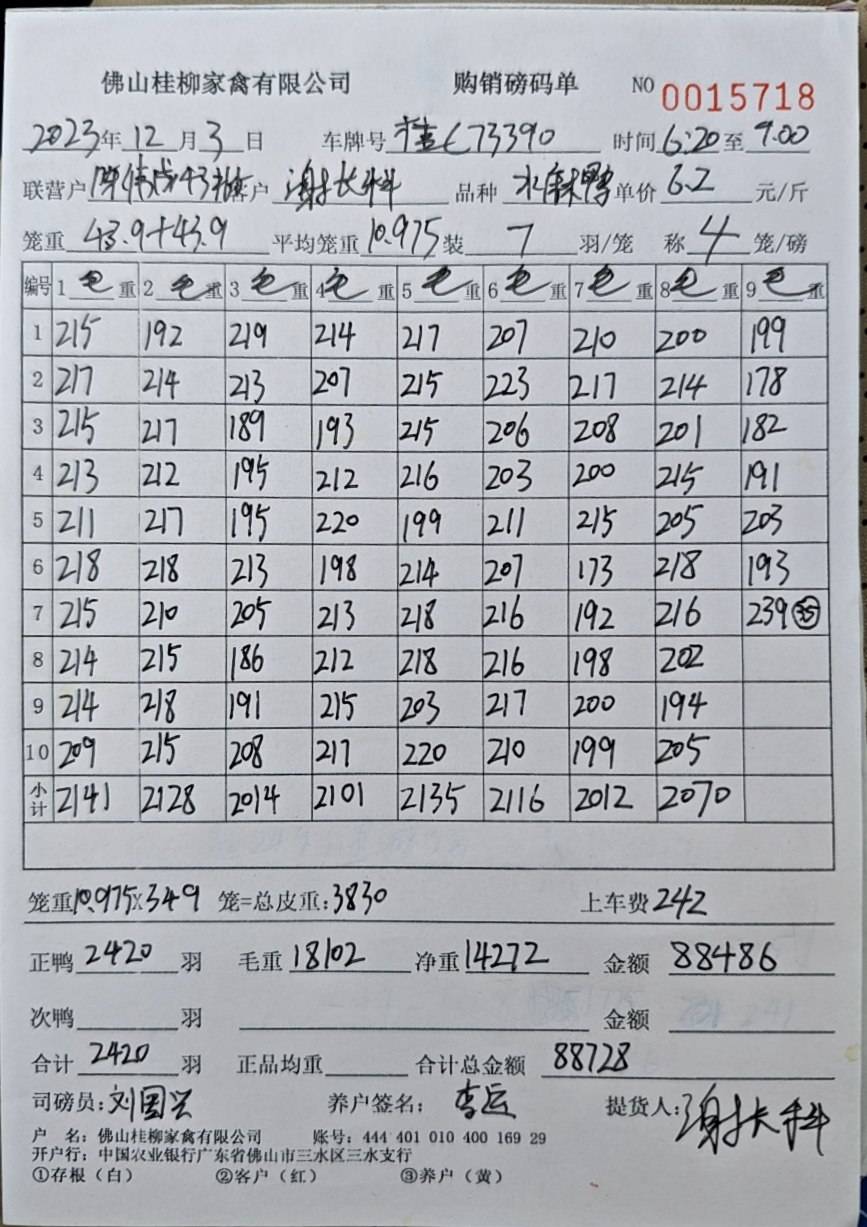 佛山桂柳家禽有限公司 购销磅码单 NO 0015718
2023年12月3日 车牌号 桂C73390 时间 6:20至9.00
联营户 陈伟成43批 客户 谢长科 品种 水麻鸭 单价 6.2 元/斤
笼重 43.9+43.9 平均笼重 10.975 装 7 羽/笼 称 4 笼/磅
编号 1 毛 重 2 毛 重 3 毛 重 4 毛 重 5 毛 重 6 毛 重 7 毛 重 8 毛 重 9 毛 重
1 215 192 219 214 217 207 210 200 199
2 217 214 213 207 215 223 217 214 178
3 215 217 189 193 215 206 208 201 182
4 213 212 195 212 216 203 200 215 191
5 211 217 195 220 199 211 215 205 203
6 218 218 213 198 214 207 173 218 193
7 215 210 205 213 218 216 192 216 239 35
8 214 215 186 212 218 216 198 202
9 214 218 191 215 203 217 200 194
10 209 215 208 217 220 210 199 205
小计 2141 2128 2014 2101 2135 2116 2012 2070
笼重10.975×349 笼=总皮重:3830 上车费 242
正鸭 2420 羽 毛重 18102 净重 14272 金额 88486
次鸭 羽 金额
合计 2420 羽 正品均重 合计总金额 88728
司磅员:刘国兴 养户签名: 李运 提货人:谢长科
户 名: 佛山桂柳家禽有限公司 账号: 444 401 010 400 169 29
开户行: 中国农业银行广东省佛山市三水区三水支行
①存根（白） ②客户（红） ③养户（黄）